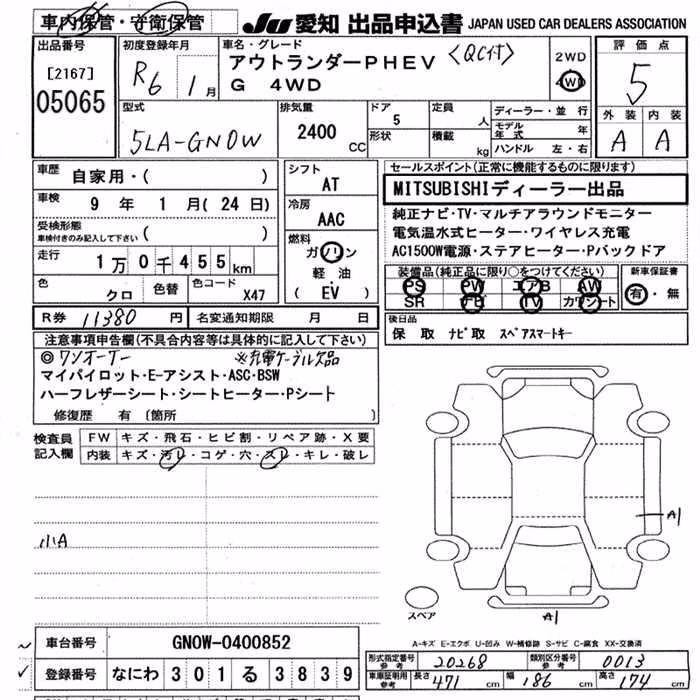 車内保管・守衛保管
JU 愛知 出品申込書 JAPAN USED CAR DEALERS ASSOCIATION
出品番号
[2167]
05065
初度登録年月
R6 1月
車名・グレード
アウトランダーPHEV 〈QC付〉
G 4WD
2WD
4WD
評価点
5
外装 内装
A A
型式
5LA-GN0W
排気量
2400
CC
ドア
5
形状
定員
人
積載
kg
ディーラー・並行
モデル年式 年
ハンドル 左・右
車歴
自家用・( )
車検
9 年 1 月(24日)
受検形態
車検付きのみ記入して下さい ( )
走行
1万0千455km
色
クロ
色替
色コード
X47
シフト
AT
冷房
AAC
燃料
ガソリン
軽油
( EV )
セールスポイント(正常に機能するものに限ります)
MITSUBISHIディーラー出品
純正ナビ・TV・マルチアラウンドモニター
電気温水式ヒーター・ワイヤレス充電
AC1500W電源・ステアヒーター・Pバックドア
装備品(純正品に限り○をつけてください)
PS PW エアB AW
SR ナビ TV カワシート
新車保証書
有・無
R券 11380 円
名変通知期限 月 日
後日品
保 取 ナビ取 スペアスマートキー
注意事項申告欄(不具合内容等は具体的に記入して下さい)
◎ワンオーナー ※充電ケーブル欠品
マイパイロット・E-アシスト・ASC・BSW
ハーフレザーシート・シートヒーター・Pシート
修復歴 有 〔箇所
検査員
記入欄
FW キズ・飛石・ヒビ割・リペア跡・X要
内装 キズ・汚レ・コゲ・穴・スレ・キレ・破レ
小A
A1
スペア
A1
A-キズ E-エクボ U-凹み W-補修跡 S-サビ C-腐食 XX-交換済
車台番号 GN0W-0400852
登録番号 なにわ 301 る 3839
形式指定番号
参考
20268
類別区分番号
参考
0013
車両寸法
参考
長さ 471 cm 幅 186 cm 高さ 174 cm